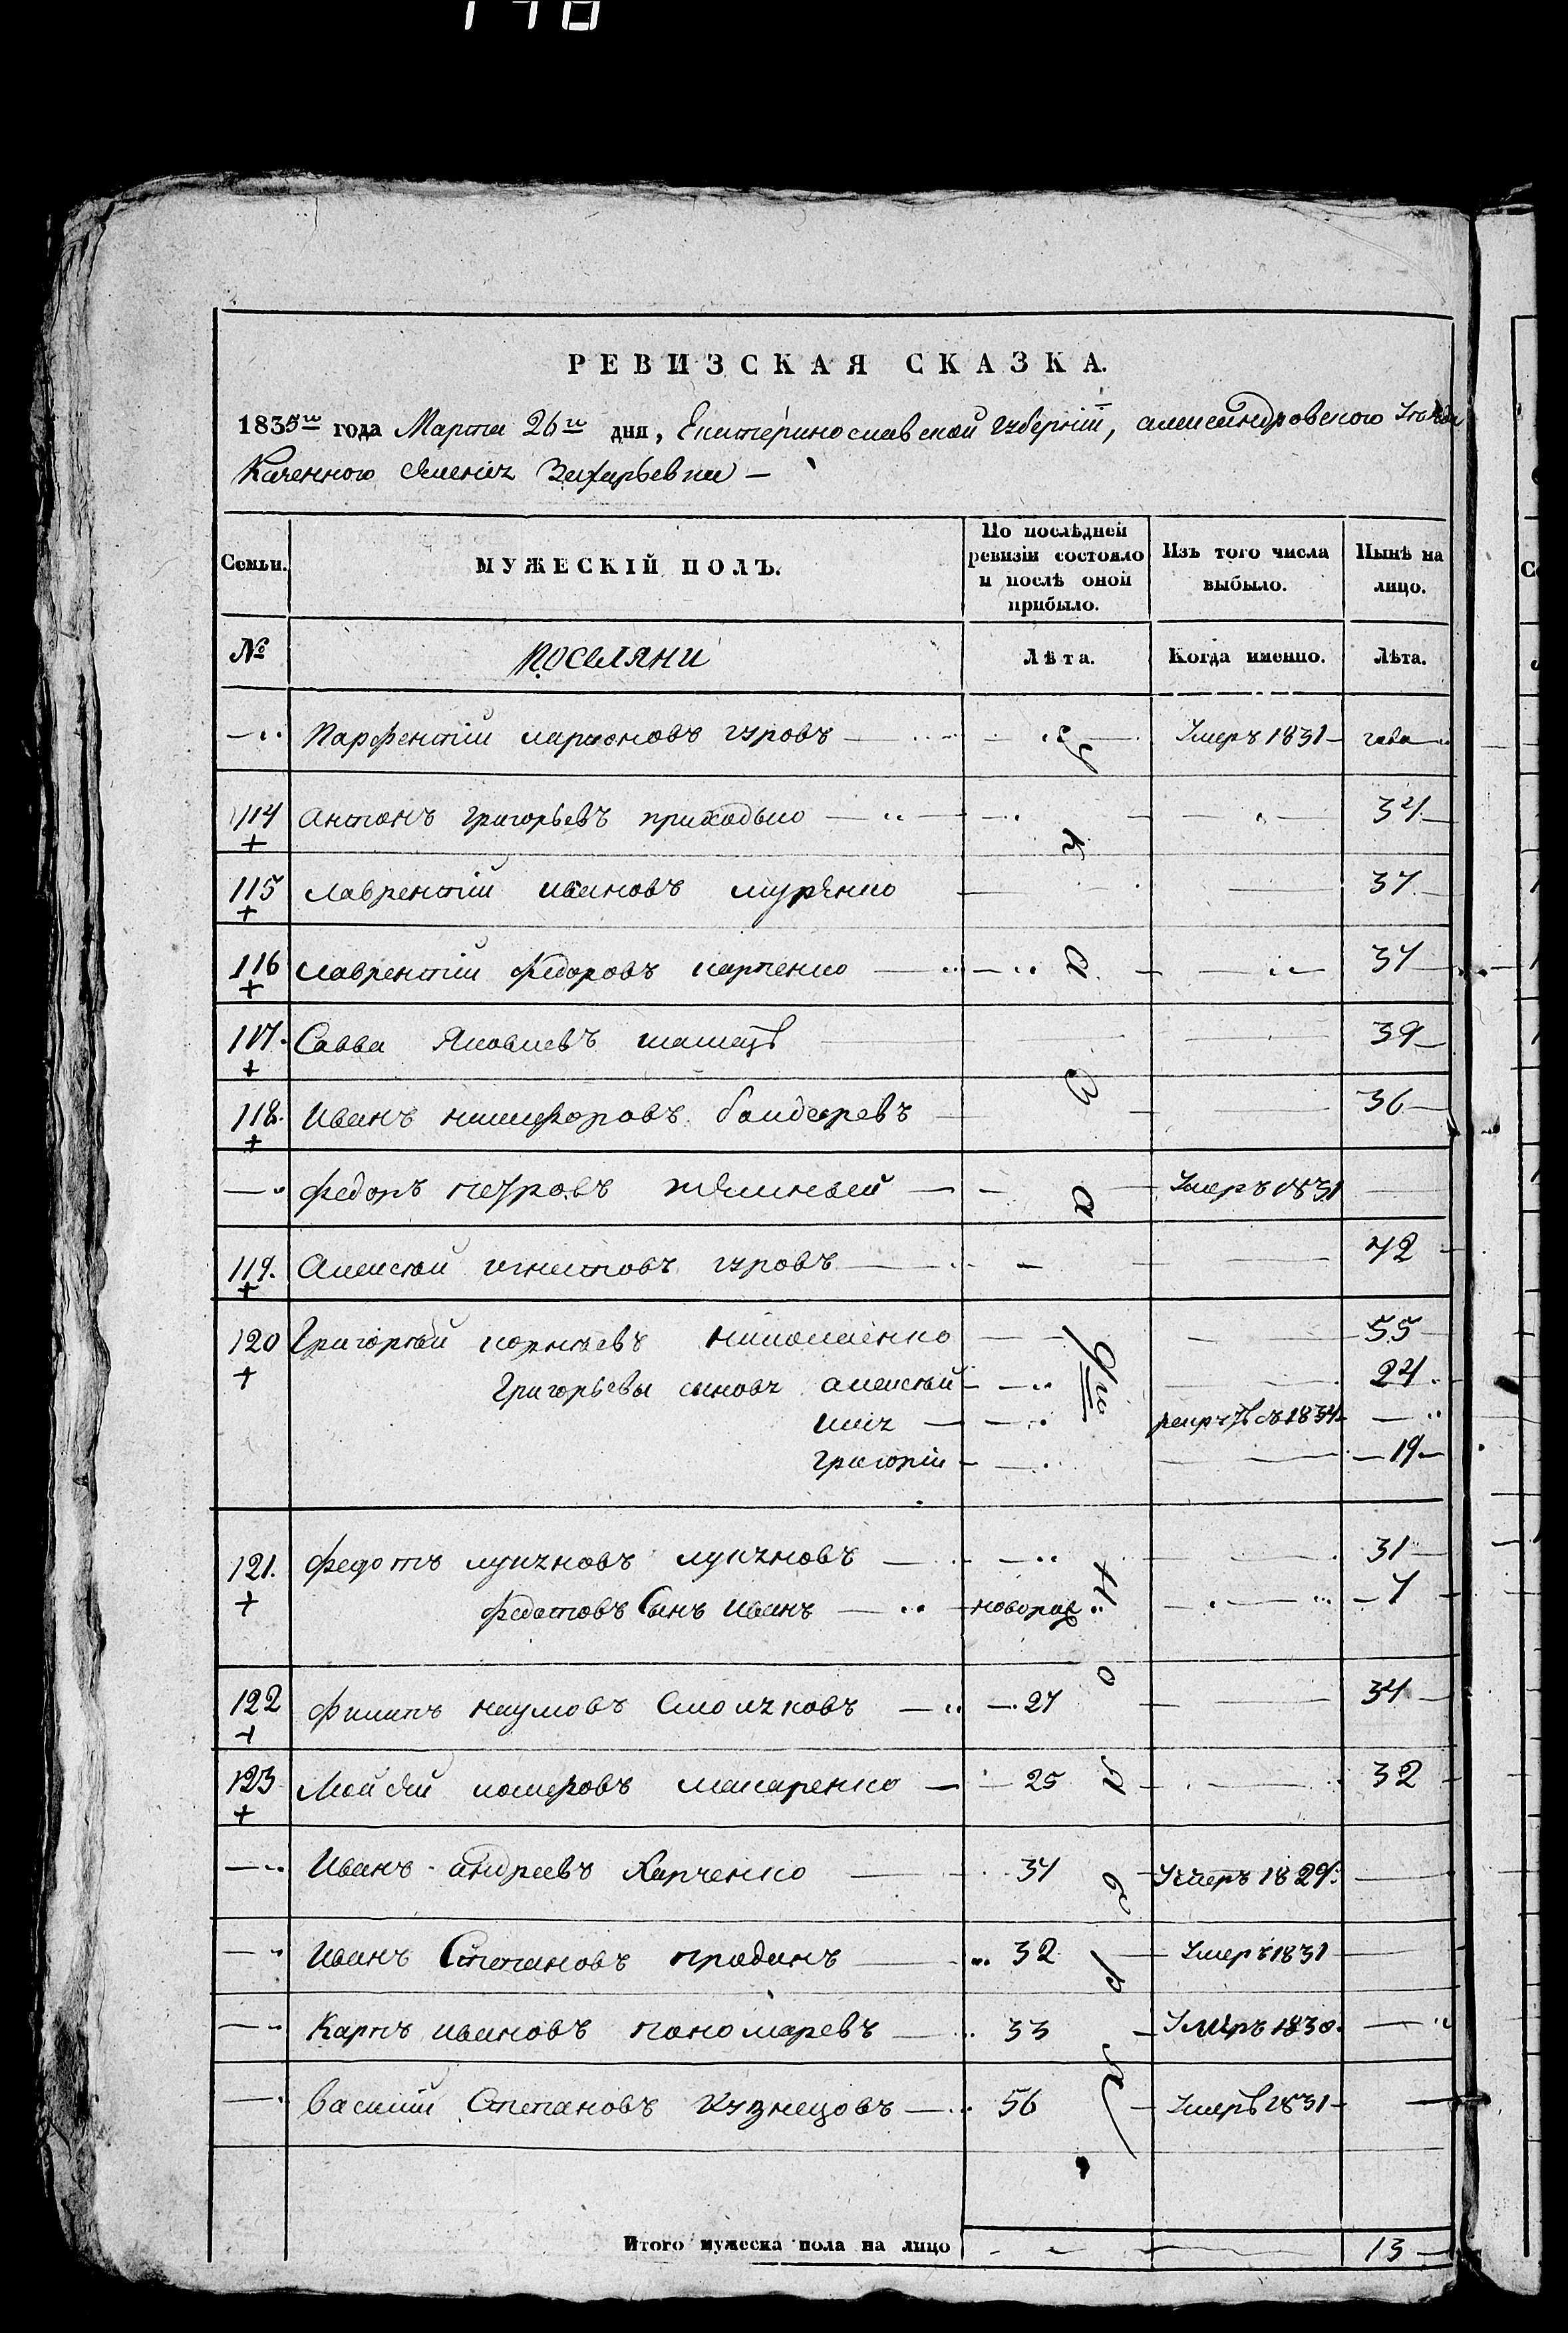 РЕВИЗСКАЯ СКАЗКА.
1835го года Марта 26го дня, Екатеринославской губерніи, александровского уезда
Казенного Захарьевки —
Семьи. МУЖЕСКІЙ ПОЛЪ. По послѣдней ревизіи состояло и послѣ оной прибыло. Изъ того числа выбыло. Нынѣ на лицо.
№ поселяни Лѣта. Когда именно. Лѣта.
Парфентій ларионовъ гуровъ Умеръ 1831 года
114 антонъ григорьевъ приходько 34
115 лаврентій ивановъ 37
116 лаврентій федоровъ карпенко 37
117. Савва Яковлевъ 39
118. Иванъ никифоровъ бандеревъ 36
федоръ петровъ Умеръ 1831
119. Алексѣй игнатовъ гуровъ 42
120 Григорѣй корнѣевъ николаенко 55
Григорьевы сыновья алексѣй 24
илья рекрутъ съ 1834
григорій 19
121. федотъ лукяновъ лукяновъ 31
федотовъ Сынъ иванъ новорож 7
122 филипъ наумовъ Смоляковъ 27 34
123 Мойсѣй макаренко 25 32
Иванъ андреевъ Харченко 37 Умеръ 1829.
Иванъ Степановъ прадинъ 32 Умеръ 1831
Карпъ ивановъ пономаревъ 33 Умеръ 1830.
Василій Степановъ кузнецовъ 56 Умеръ 1831
указа 9го Ноября
Итого мужеска пола на лицо 13